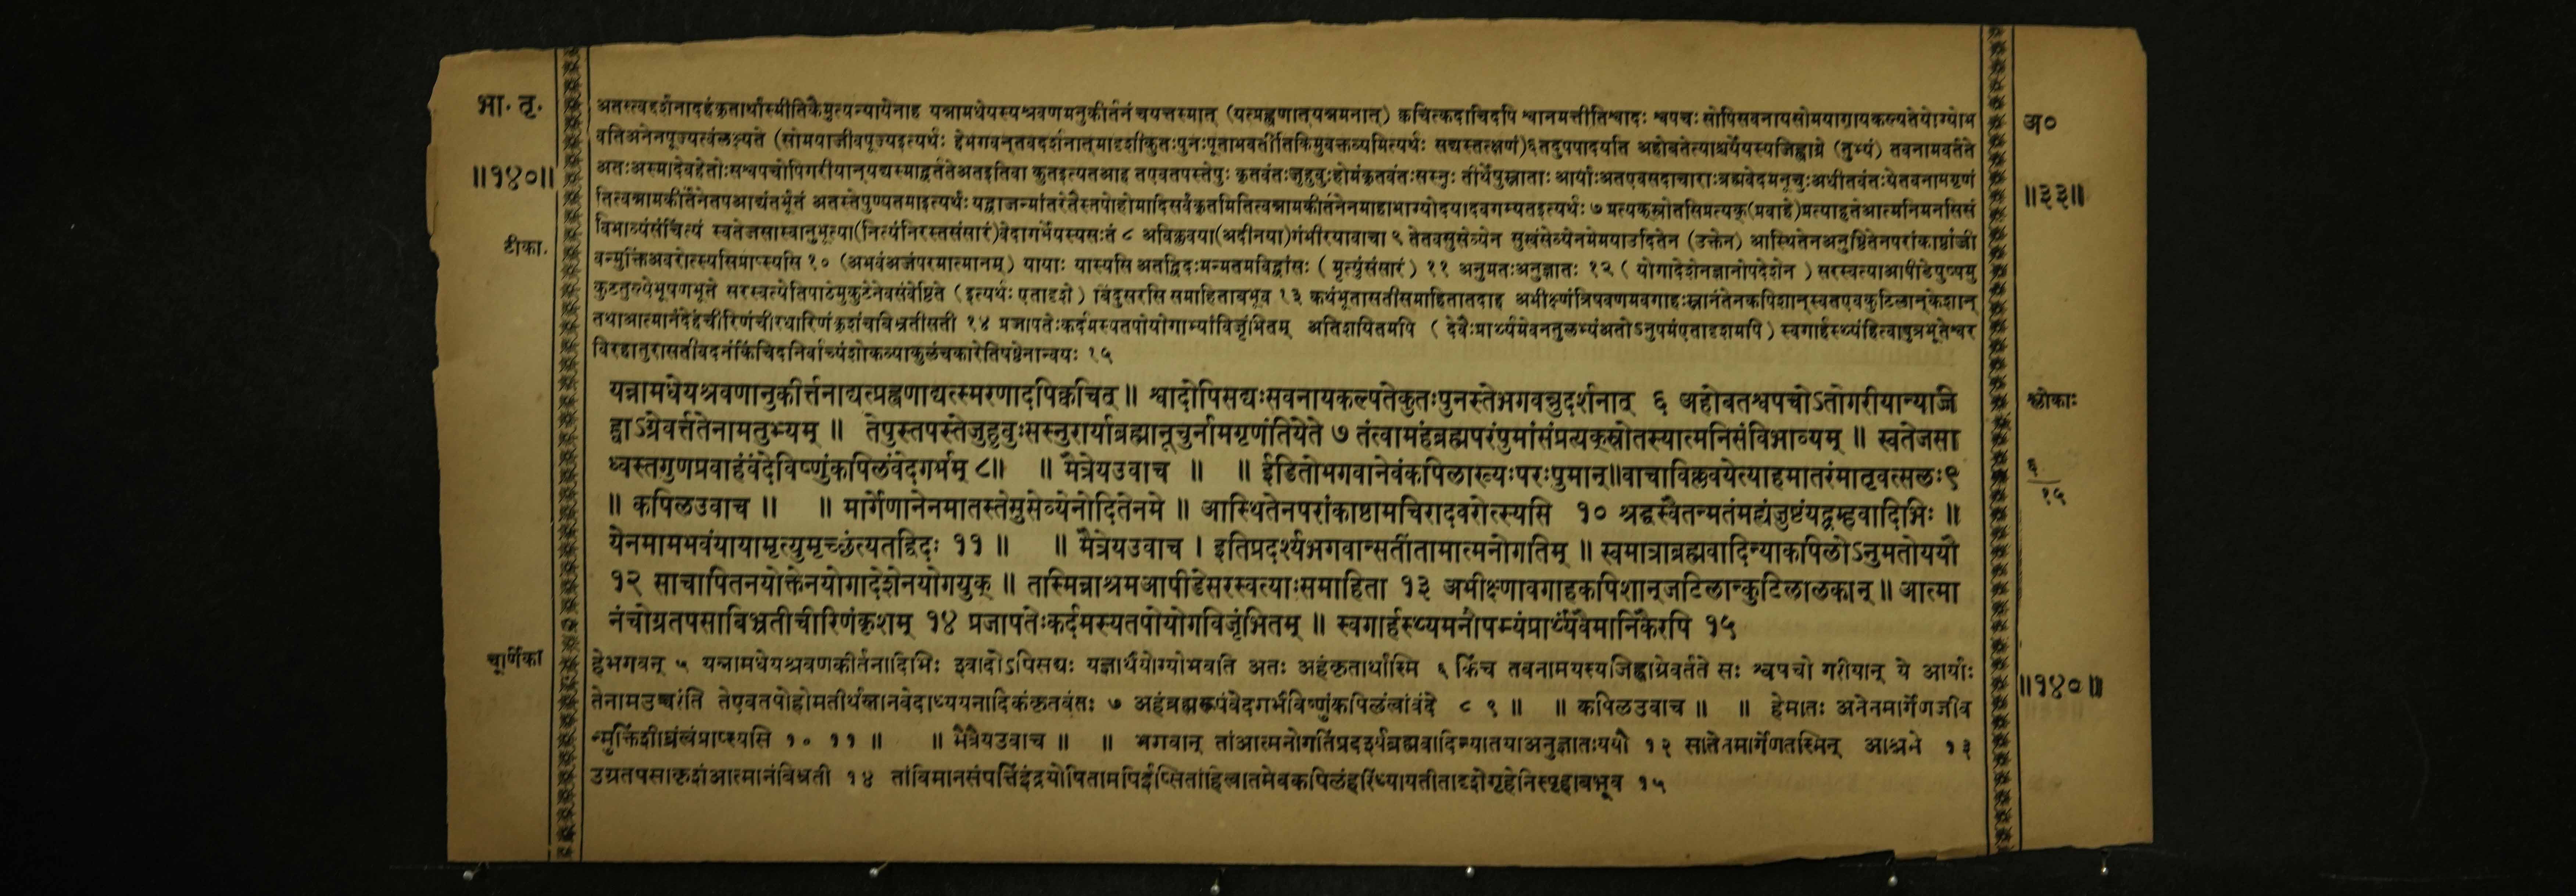 भा. तृ.
॥१४०॥
टीका.
चूर्णिका
अतस्त्वदर्शनादहंकृतार्थास्मीतिकैमुत्यन्यायेनाह यन्नामधेयस्यश्रवणमनुकीर्तनंचयत्तस्मात् (यत्प्रह्वणात्यन्नमनात्) क्वचित्कदाचिदपि श्वानमत्तीतिश्वादः श्वपचः सोपिसवनायसोमयागायकल्प्यतेयोग्योभ
वतिअनेनपूज्यत्वंलक्ष्यते (सोमयाजीवपूज्यइत्यर्थः हेभगवन्तवदर्शनात्मादृशीकुतःपुनःपूताभवतीतिकिमुवक्तव्यमित्यर्थः सद्यस्तत्क्षणं)६तदुपपादयति अहोबतेत्याश्चर्येयस्यजिह्वाग्रे (तुभ्यं) तवनामवर्तते
अतःअस्मादेवहेतोःसश्वपचोपिगरीयान्यद्यस्माद्वर्ततेअतइतिवा कुतइत्यतआह तएवतपस्तेपुः कृतवंतःजुहुवुःहोमंकृतवंतःसस्नुः तीर्थेषुस्नाताः आर्याःअतएवसदाचाराःब्रह्मवेदमनूचुःअधीतवंतःयेतवनामगृणं
तित्वन्नामकीर्तनेतपआद्यंतर्भूतं अतस्तेपुण्यतमाइत्यर्थः यद्वाजन्मांतरेतैस्तपोहोमादिसर्वंकृतमितित्वन्नामकीर्तनेनमाहाभाग्योदयादवगम्यतइत्यर्थः ७ प्रत्यक्स्रोतसिप्रत्यक्(प्रवाहे)प्रत्याहृतेआत्मनिमनसिसं
विभाव्यंसंचिंत्यं स्वतेजसास्वानुभूत्या(नित्यंनिरस्तसंसारं)वेदागर्भेयस्यसःतं ८ अविक्लवया(अदीनया)गंभीरयावाचा ९ तेतवसुसेव्येन सुखंसेव्येनमेमयाउदितेन (उक्तेन) आस्थितेनअनुष्ठितेनपरांकाष्ठांजी
वन्मुक्तिंअवरोत्स्यसिप्राप्स्यसि १० (अभवंअजंपरमात्मानम्) यायाः यास्यसि अतद्विदःमन्मतमविद्वांसः ( मृत्युंसंसारं ) ११ अनुमतःअनुज्ञातः १२ ( योगादेशेनज्ञानोपदेशेन ) सरस्वत्याआपीडेपुष्पमु
कुटतुल्येभूषणभूते सरस्वत्येतिपाठेमुकुटेनेवसंवेष्टिते (इत्यर्थः एतादृशे) बिंदुसरसि समाहिताबभूव १३ कथंभूतासतीसमाहितातदाह अभीक्ष्णंत्रिषवणमवगाहःस्नानंतेनकपिशान्स्वतएवकुटिलान्केशान्
तथाआत्मानंदेहंचीरिणंचीरधारिणंकृशंचबिभ्रतीसती १४ प्रजापतेःकर्दमस्यतपोयोगाभ्यांविजृंभितम् अतिशयितमपि ( देवैःप्रार्थ्यमेवनतुलभ्यंअतोऽनुपमंएतादृशमपि) स्वगार्हस्थ्यंहित्वापुत्रभूतेश्वर
विरहातुरासतीवदनंकिंचिदनिर्वाच्यंशोकव्याकुलंचकारेतिषष्ठेनान्वयः १५
यन्नामधेयश्रवणानुकीर्त्तनाद्यत्प्रह्वणाद्यत्स्मरणादपिक्वचित् ॥ श्वादोपिसद्यःसवनायकल्पतेकुतःपुनस्तेभगवन्नुदर्शनात् ६ अहोबतश्वपचोऽतोगरीयान्यज्जि
ह्वाऽग्रेवर्त्ततेनामतुभ्यम् ॥ तेपुस्तपस्तेजुहुवुःसस्नुरार्याब्रह्मानूचुर्नामगृणंतियेते ७ तंत्वामहंब्रह्मपरंपुमांसंप्रत्यक्स्रोतस्यात्मनिसंविभाव्यम् ॥ स्वतेजसा
ध्वस्तगुणप्रवाहंवंदेविष्णुंकपिलंवेदगर्भम् ८॥ ॥ मैत्रेयउवाच ॥ ॥ ईडितोभगवानेवंकपिलाख्यःपरःपुमान्॥वाचाविक्लवयेत्याहमातरंमातृवत्सलः९
॥ कपिलउवाच ॥ ॥ मार्गेणानेनमातस्तेसुसेव्येनोदितेनमे ॥ आस्थितेनपरांकाष्ठामचिरादवरोत्स्यसि १० श्रद्धस्वैतन्मतंमह्यंजुष्टंयद्ब्रम्हवादिभिः ॥
येनमामभवंयायामृत्युमृच्छंत्यतद्विदः ११ ॥ ॥ मैत्रेयउवाच । इतिप्रदर्श्यभगवान्सतींतामात्मनोगतिम् ॥ स्वमात्राब्रह्मवादिन्याकपिलोऽनुमतोययौ
१२ साचापितनयोक्तेनयोगादेशेनयोगयुक् ॥ तस्मिन्नाश्रमआपीडेसरस्वत्याःसमाहिता १३ अभीक्ष्णावगाहकपिशान्जटिलान्कुटिलालकान् ॥ आत्मा
नंचोग्रतपसाबिभ्रतीचीरिणंकृशम् १४ प्रजापतेःकर्दमस्यतपोयोगविजृंभितम् ॥ स्वगार्हस्थ्यमनौपम्यंप्रार्थ्यंवैमानिकैरपि १५
हेभगवन् ५ यन्नामधेयश्रवणकीर्तनादिभिः श्वादोऽपिसद्यः यज्ञार्थंयोग्योभवति अतः अहंकृतार्थास्मि ६ किंच तवनामयस्यजिह्वाग्रेवर्तते सः श्वपचो गरीयान् ये आर्याः
तेनामउच्चरंति तेएवतपोहोमतीर्थस्नानवेदाध्ययनादिकंकृतवंतः ७ अहंब्रह्मरूपंवेदगर्भंविष्णुंकपिलंत्वांवंदे ८ ९ ॥ ॥ कपिलउवाच ॥ ॥ हेमातः अनेनमार्गेणजीव
न्मुक्तिंशीघ्रंत्वंप्राप्स्यसि १० ११ ॥ ॥ मैत्रेयउवाच ॥ ॥ भगवान् तांआत्मनोगतिंप्रदर्श्यब्रह्मवादिन्यातयाअनुज्ञातःययौ १२ सातेनमार्गेणतस्मिन् आश्रमे १३
उग्रतपसाकृशंआत्मानंबिभ्रती १४ तांविमानसंपत्तिंइंद्रयोषितामपिईप्सितांहित्वातमेवकपिलंहरिंध्यायतीतादृशेगृहेनिस्पृहाबभूव १५
अ०
॥३३॥
श्लोकाः
६
१५
॥१४०॥